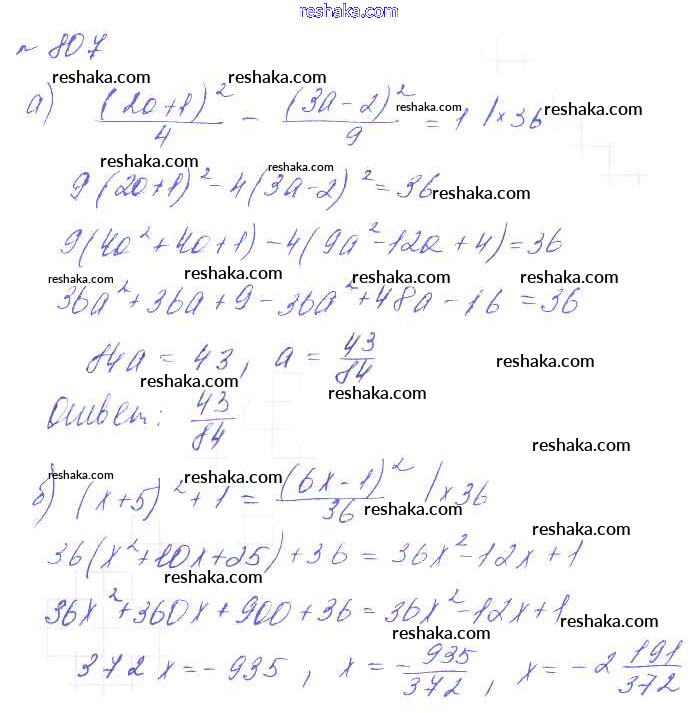 www.reshaka.com
№ 807
reshaka.com reshaka.com
а) (2a+1)²/4 - (3a-2)²/9 = 1 | ×36
reshaka.com
reshaka.com reshaka.com
9(2a+1)² - 4(3a-2)² = 36
reshaka.com
9(4a²+4a+1) - 4(9a²-12a+4) = 36
reshaka.com reshaka.com reshaka.com reshaka.com
36a²+36a+9-36a²+48a-16 = 36
84a = 43, a = 43/84
reshaka.com
reshaka.com reshaka.com
Ответ: 43/84
reshaka.com
reshaka.com reshaka.com reshaka.com
б) (x+5)²+1 = (6x-1)²/36 | ×36
reshaka.com
reshaka.com
36(x²+10x+25)+36 = 36x²-12x+1
reshaka.com
36x²+360x+900+36 = 36x²-12x+1
reshaka.com reshaka.com
372x = -935, x = -935/372, x = -2 191/372
reshaka.com